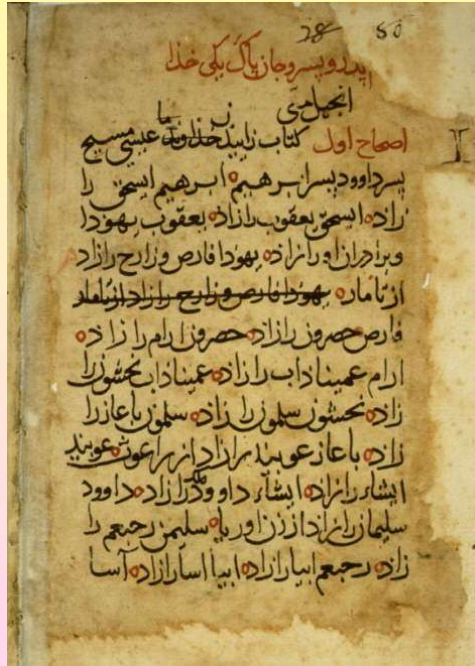 28 50
اپدر و پسر و جان پاک یکی خذا
انجیل متی
اصحاح اول کتاب زاییدن خداوند ما عیسی مسیح
پسر داوود پسر ابرهیم ابرهیم ایسحق را
زاده ایسحق یعقوب را زاده یعقوب یهودا
و برادران او را زاده یهودا فارص و زارح را زاد
از تامار یهودا فارص و زارح را زاد از تامار
فارص حصرون را زاده حصرون ارام را زاده
ارام عمیناداب را زاده عمیناداب نحشون را
زاده نحشون سلمون را زاده سلمون باعاز را
زاده باعاز عوبید را زاد از راعوث عوبید
ایشاء را زاده ایشاء داوود ملک را زاده داوود
سلیمان را زاد از زن اوریا سلیمن رحبعم را
زاده رحبعم ابیا را زاده ابیا اسا را زاده آسا